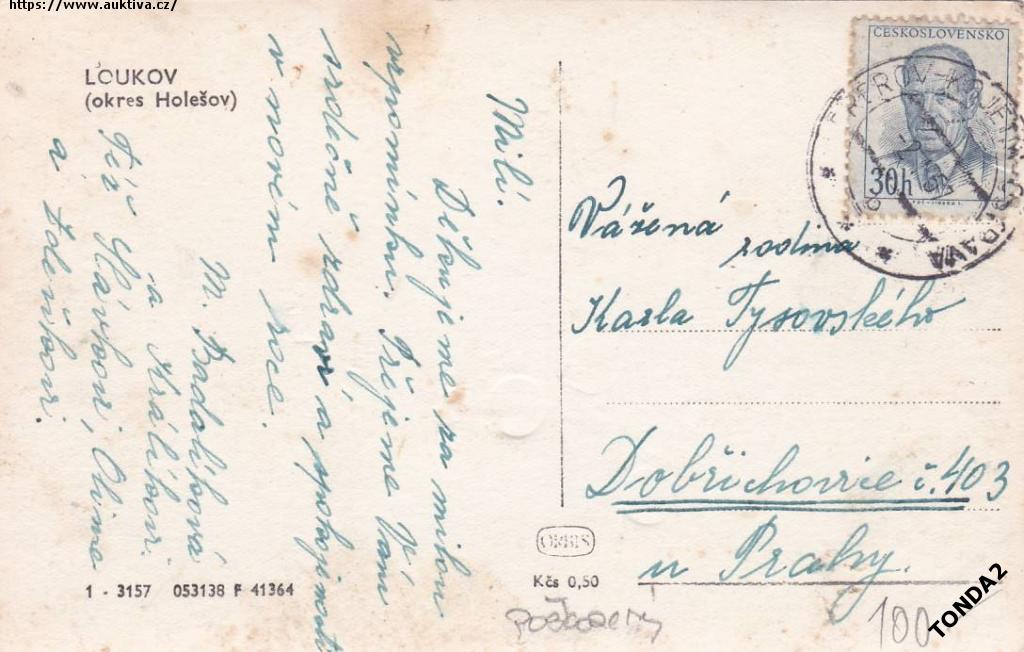 https://www.auktiva.cz/
LOUKOV
(okres Holešov)
Milí.
Děkujeme za milou
vzpomínku. Přejeme Vám
srdečně zdraví a spokojenosti
v novém roce.
M. Badalíková
a Králíkovi.
Též Slávkovi, Olina
a Zdeníkovi.
ČESKOSLOVENSKO
30h
PŘEROV-KOJETÍN
Vážená
rodina
Karla Tysovského
Dobřichovice č. 403
u Prahy.
ORBIS
Kčs 0,50
1 - 3157 053138 F 41364
poškozený
100
TONDA2